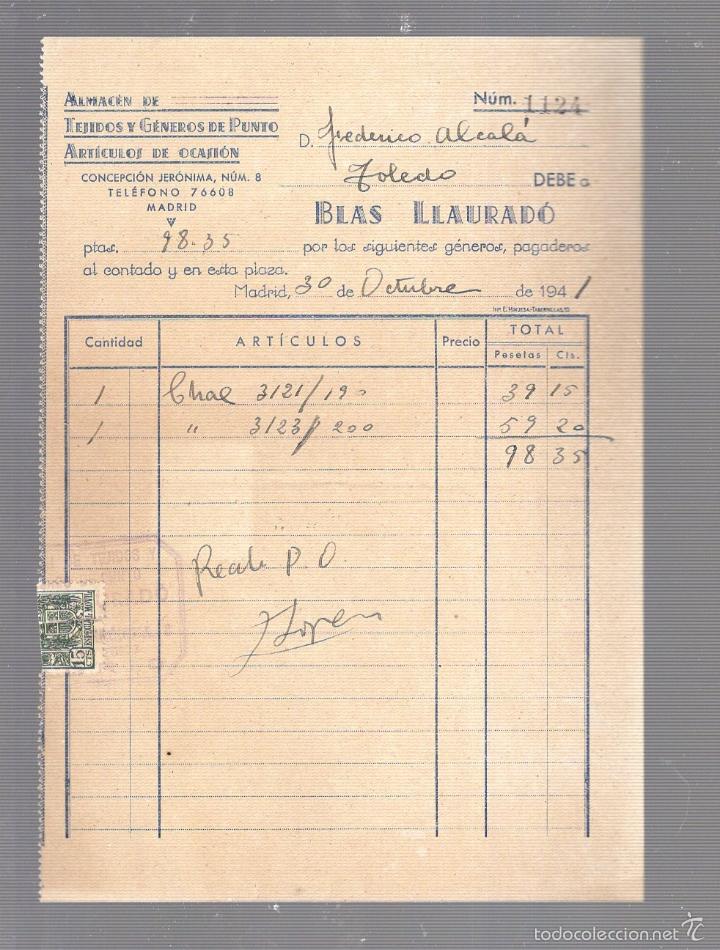 ALMACÉN DE
TEJIDOS Y GÉNEROS DE PUNTO
ARTÍCULOS DE OCASIÓN
CONCEPCIÓN JERÓNIMA, NÚM. 8
TELÉFONO 76608
MADRID
Núm. 1124
D. Frederico Alcalá
Toledo DEBE a
BLAS LLAURADÓ
ptas. 98.35 por los siguientes géneros, pagaderos
al contado y en esta plaza.
Madrid, 30 de Octubre de 1941
Cantidad ARTÍCULOS Precio TOTAL
Pesetas Cts.
1 Chal 3121/190 39 15
1 " 3123/200 59 20
98 35
P. O.
15 CTS
ESPECIAL MÓVIL
todocoleccion.net